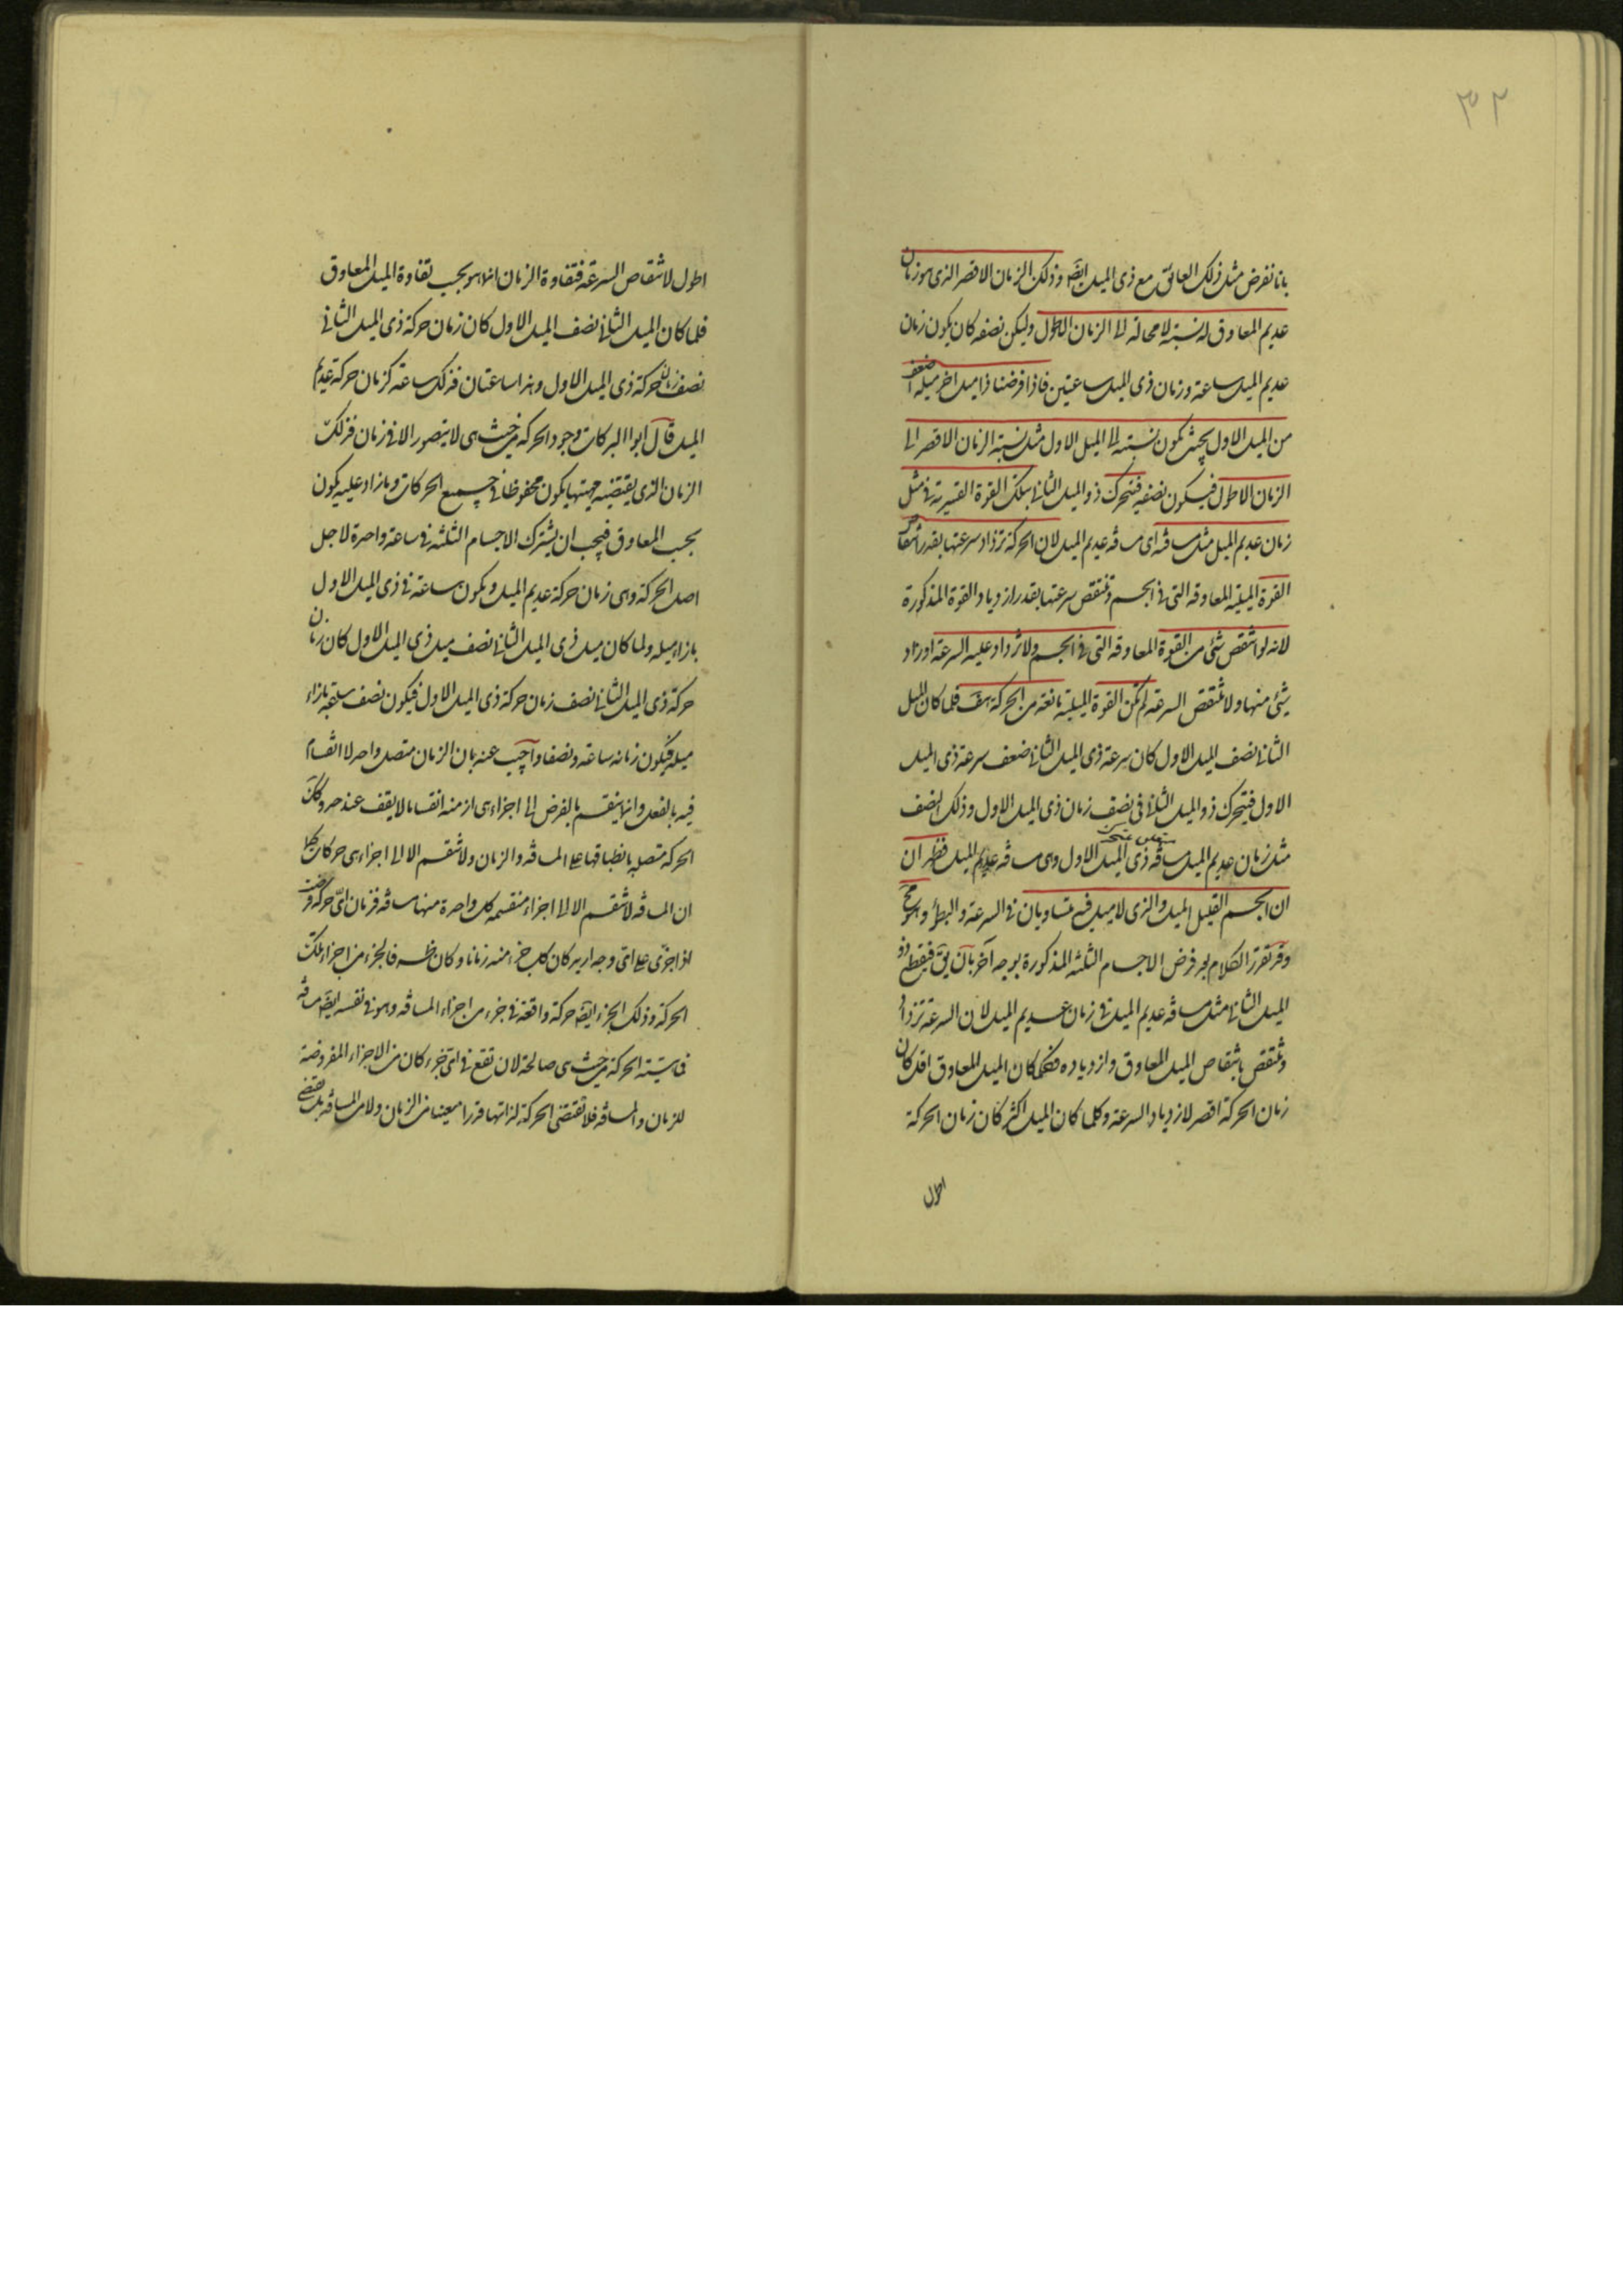 ٣٢
بانا نفرض مثل ذلك العائق مع ذى الميل ايضا وذلك الزمان الاقصر الذى هو زمان
عديم المعاوق له نسبة لا محالة الى الزمان الاطول وليكن نصفه كان يكون زمان
عديم الميل ساعة وزمان ذى الميل ساعتين فاذا فرضنا ذا ميل اخر ميله اضعف
من الميل الاول بحيث يكون نسبته الى الميل الاول مثل نسبة الزمان الاقصر الى
الزمان الاطول فيكون نصفه فيتحرك ذو الميل الثانى بتلك القوة القسرية فى مثل
زمان عديم الميل مثل مسافته اى مسافة عديم الميل لان الحركة تزداد سرعتها بقدر انتقاص
القوة الميلية المعاوقة التى فى الجسم وتنتقص سرعتها بقدر ازدياد القوة المذكورة
لانه لو انتقص شئ من القوة المعاوقة التى فى الجسم ولا تزداد عليه السرعة او زاد
شئ منها ولا تنتقص السرعة لم تكن القوة الميلية مانعة من الحركة هف فلما كان الميل
الثانى نصف الميل الاول كان سرعة ذى الميل الثانى ضعف سرعة ذى الميل
الاول فيتحرك ذو الميل الثانى فى نصف زمان ذى الميل الاول وذلك النصف
مثل زمان عديم الميل مسافة ذى الميل الاول وهى مسافة عديم الميل فظهر ان
ان الجسم القليل الميل والذى لا ميل فيه متساويان فى السرعة والبطؤ وهو مح
وقد تقرر الكلام بعد فرض الاجسام الثلثة المذكورة بوجه آخر بان يق فيقطع ذو
الميل الثانى مثل مسافة عديم الميل فى زمان عديم الميل لان السرعة تزداد
وتنتقص بانتقاص الميل المعاوق وازدياده فكلما كان الميل المعاوق اقل كان
زمان الحركة اقصر لازدياد السرعة وكلما كان الميل اكثر كان زمان الحركة
اطول
اطول لانتقاص السرعة فتفاوة الزمان انما هو بحسب تفاوة الميل المعاوق
فلما كان الميل الثانى نصف الميل الاول كان زمان حركة ذى الميل الثانى
نصف زمان حركة ذى الميل الاول وهذا ساعتان فذلك ساعة كزمان حركة عديم
الميل قال ابوا البركات وجود الحركة من حيث هى لا يتصور الا فى زمان فذلك
الزمان الذى يقتضيه جهتها يكون محفوظا فى جميع الحركات وما زاد عليه يكون
بحسب المعاوق فيجب ان يشترك الاجسام الثلثة فى ساعة واحدة لاجل
اصل الحركة وهى زمان حركة عديم الميل ويكون ساعة فى ذى الميل الاول
بازاء ميله ولما كان ميل ذى الميل الثانى نصف ميل ذى الميل الاول كان زمان
حركة ذى الميل الثانى نصف زمان حركة ذى الميل الاول فيكون نصف ساعة بازاء
ميله فيكون زمانه ساعة ونصفا واجيب عنه بان الزمان متصل واحد لا انقسام
فيه بالفعل وانما ينقسم بالفرض الى اجزاء هى ازمنه انقساما لا يقف عند حد وكذلك
الحركة متصلة بانطباقها على المسافة والزمان ولا تنقسم الا الى اجزاء هى حركات كما
ان المسافة لا تنقسم الا الى اجزاء منقسمة كل واحدة منها مسافة فزمان اى حركة فرضت
اذا جزى على اى وجه اريد كان كل جزء منه زمانا وكان ظرفه فالجزء من اجزاء تلك
الحركة وذلك الجزء ايضا حركة واقعة فى جزء من اجزاء المسافة وهو فى نفسه ايضا مسافة
الحركة من حيث هى صالحة لان تقع فى اى جزء كان من الاجزاء المفروضة
للزمان والمسافة فلا تقتضى الحركة لذاتها قدرا معينا من الزمان ولا من المسافة بل تقتضى